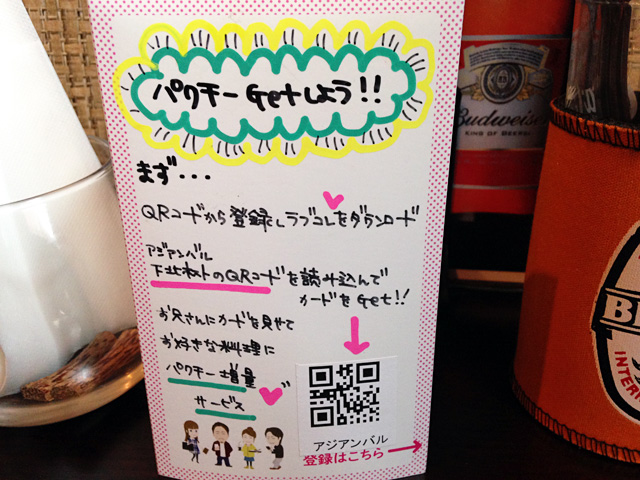 パクチーGetしよう!!
まず・・・
QRコードから登録しラブコレをダウンロード
アジアンバル
のQRコードを読み込んで
カードをGet!!
お兄さんにカードを見せて
お好きな料理に
パクチー増量
サービス
アジアンバル
登録はこちら
Budweiser
KING OF BEERS
B
INTER